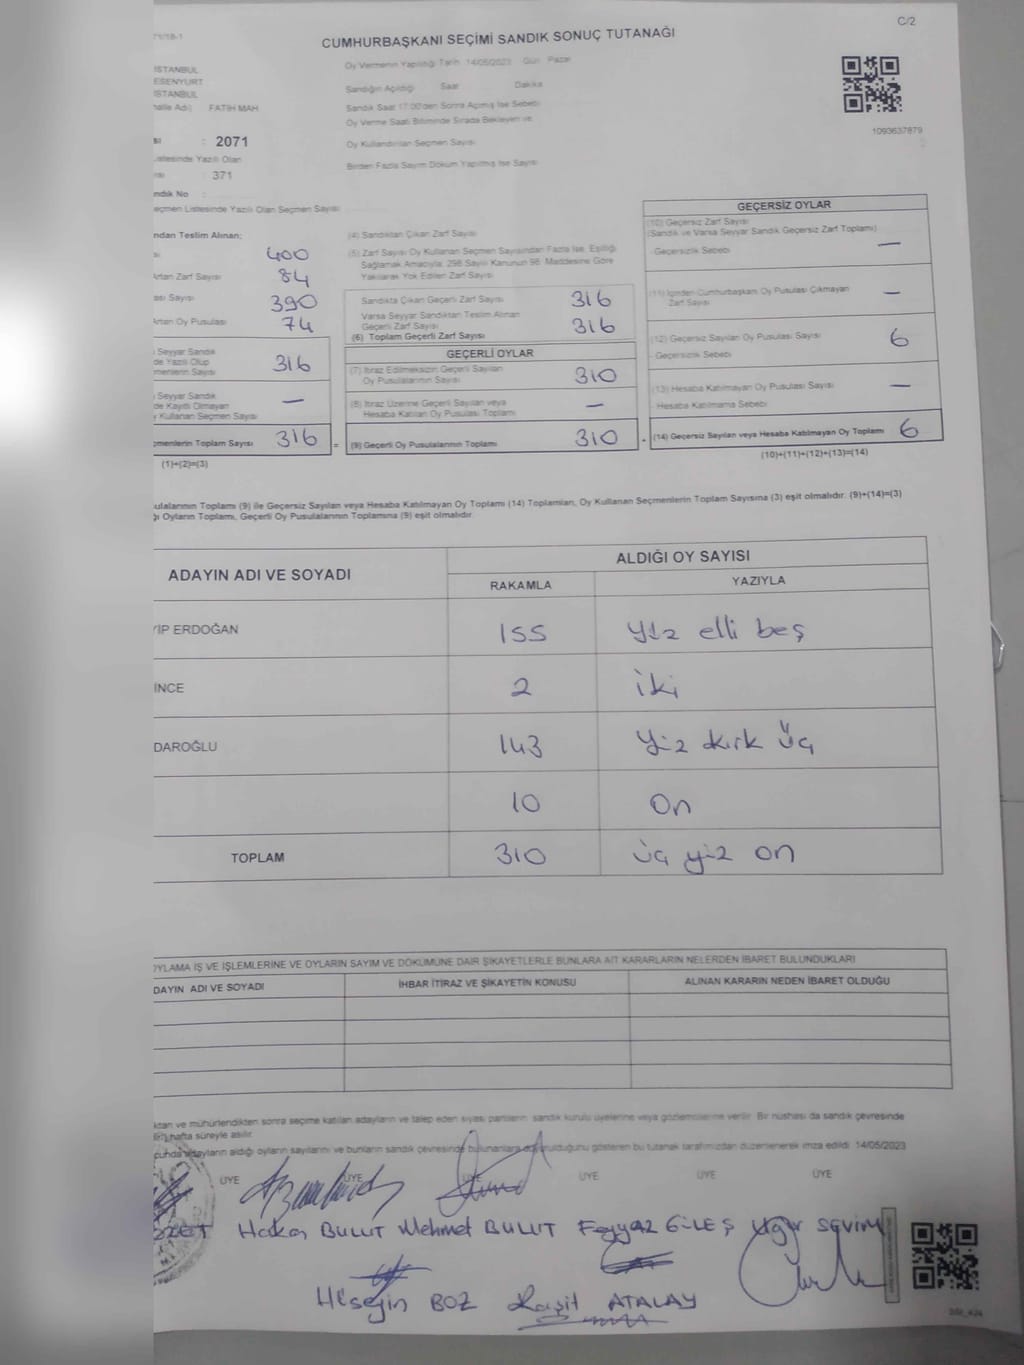 C/2
71/18-1
CUMHURBAŞKANI SEÇİMİ SANDIK SONUÇ TUTANAĞI
İSTANBUL
ESENYURT
İSTANBUL
halle Adı FATİH MAH.
Oy Vermenin Yapıldığı Tarih 14/05/2023 Gün Pazar
Sandığın Açıldığı Saat Dakika
Sandık Saat 17:00'den Sonra Açılmış İse Sebebi
Oy Verme Saati Bitiminde Sırada Bekleyen ve
Oy Kullandırılan Seçmen Sayısı
Birden Fazla Sayım Döküm Yapılmış İse Sayısı
1093637879
: 2071
Listesinde Yazılı Olan
: 371
ndık No :
eçmen Listesinde Yazılı Olan Seçmen Sayısı
ndan Teslim Alınan;
400
Artan Zarf Sayısı 84
ası Sayısı 390
Artan Oy Pusulası 74
Seyyar Sandık
de Yazılı Olup
menlerin Sayısı 316
Seyyar Sandık
de Kayıtlı Olmayan
y Kullanan Seçmen Sayısı —
çmenlerin Toplam Sayısı 316 =
(1)+(2)=(3)
(4) Sandıktan Çıkan Zarf Sayısı
(5) Zarf Sayısı Oy Kullanan Seçmen Sayısından Fazla İse, Eşitliği
Sağlamak Amacıyla, 298 Sayılı Kanunun 98. Maddesine Göre
Yakılarak Yok Edilen Zarf Sayısı
Sandıkta Çıkan Geçerli Zarf Sayısı 316
Varsa Seyyar Sandıktan Teslim Alınan
Geçerli Zarf Sayısı
(6) Toplam Geçerli Zarf Sayısı 316
GEÇERLİ OYLAR
(7) İtiraz Edilmeksizin Geçerli Sayılan
Oy Pusulalarının Sayısı 310
(8) İtiraz Üzerine Geçerli Sayılan veya
Hesaba Katılan Oy Pusulası Toplamı —
(9) Geçerli Oy Pusulalarının Toplamı 310 +
GEÇERSİZ OYLAR
(10) Geçersiz Zarf Sayısı
(Sandık ve Varsa Seyyar Sandık Geçersiz Zarf Toplamı)
- Geçersizlik Sebebi —
(11) İçinden Cumhurbaşkanı Oy Pusulası Çıkmayan
Zarf Sayısı —
(12) Geçersiz Sayılan Oy Pusulası Sayısı 6
- Geçersizlik Sebebi
(13) Hesaba Katılmayan Oy Pusulası Sayısı —
- Hesaba Katılmama Sebebi
(14) Geçersiz Sayılan veya Hesaba Katılmayan Oy Toplamı 6
(10)+(11)+(12)+(13)=(14)
usulalarının Toplamı (9) ile Geçersiz Sayılan veya Hesaba Katılmayan Oy Toplamı (14) Toplamları, Oy Kullanan Seçmenlerin Toplam Sayısına (3) eşit olmalıdır. (9)+(14)=(3)
ğı Oyların Toplamı, Geçerli Oy Pusulalarının Toplamına (9) eşit olmalıdır.
ADAYIN ADI VE SOYADI
ALDIĞI OY SAYISI
RAKAMLA YAZIYLA
YİP ERDOĞAN 155 yüz elli beş
İNCE 2 iki
DAROĞLU 143 Yüz kırk üç
10 On
TOPLAM 310 üç yüz on
OYLAMA İŞ VE İŞLEMLERİNE VE OYLARIN SAYIM VE DÖKÜMÜNE DAİR ŞİKAYETLERLE BUNLARA AİT KARARLARIN NELERDEN İBARET BULUNDUKLARI
DAYIN ADI VE SOYADI
İHBAR İTİRAZ VE ŞİKAYETİN KONUSU
ALINAN KARARIN NEDEN İBARET OLDUĞU
ktan ve mühürlendikten sonra seçime katılan adayların ve talep eden siyasi partilerin sandık kurulu üyelerine veya gözlemcilerine verilir. Bir nüshası da sandık çevresinde
hafta süreyle asılır.
adayların aldığı oyların sayılarını ve bunların sandık çevresinde bulunanlara duyurulduğunu gösteren bu tutanak tarafımızdan düzenlenerek imza edildi. 14/05/2023
ÜYE ÜYE ÜYE ÜYE ÜYE ÜYE
Hakan BULUT Mehmet BULUT Feyyaz GÜLEŞ Uğur SEVİM
Hüseyin BOZ Raşit ATALAY